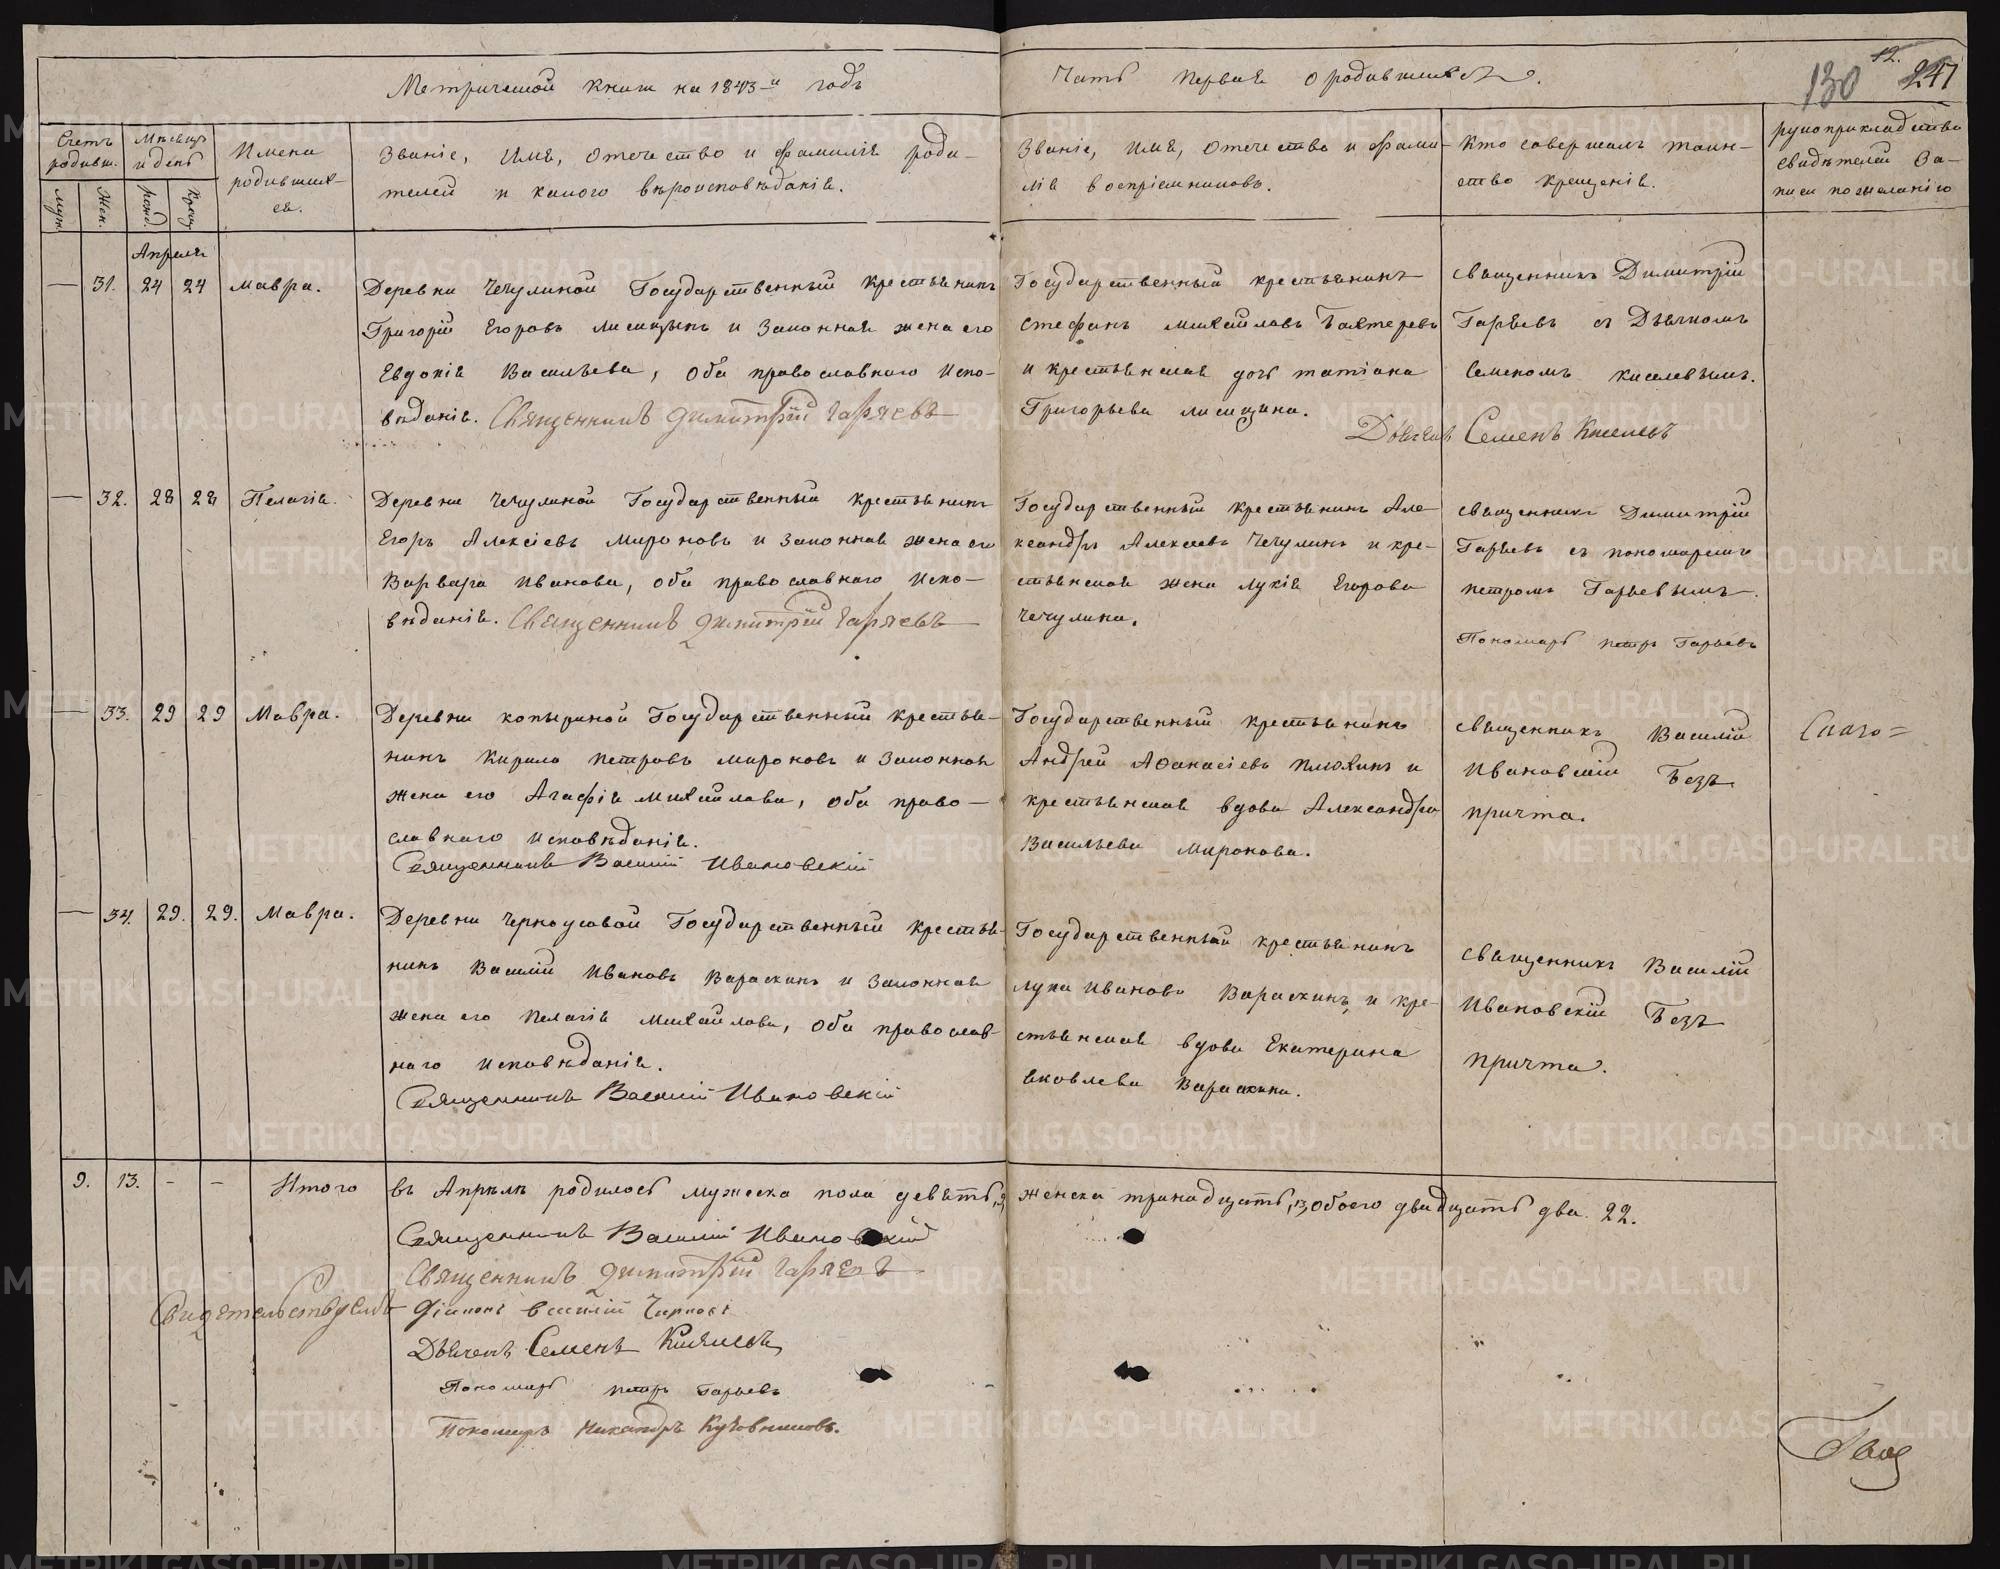 Метрической книги на 1843-й годъ
Часть первая о родившихся.
12.
130 247
Счетъ родивш.
Мѣсяцъ и день
Имена родивших-ся.
Званіе, имя, отечество и фамилія роди-
телей и какого вѣроисповѣданія.
Званіе, имя, отечество и фами-
лія воспріемниковъ.
Кто совершалъ таин-
ство крещенія.
рукоприкладство
свидѣтелей за-
писи по желанію
муж. Жен. рожд. Крещ.
Апрель
— 31. 24 24 Мавра.
Деревни Чечулиной Государственный крестьянинъ
Григорій Егоровъ Лисицынъ и законная жена его
Евдокія Васильева, оба православнаго испо-
вѣданія. Священникъ Димитрій Гаряевъ
Государственный крестьянинъ
Стефанъ Михайловъ Бахтеревъ
и крестьянская дочь Татіана
Григорьева Лисицина.
священникъ Димитрій
Гаряевъ съ Дьячкомъ
Семеномъ Киселевымъ.
Дьячекъ Семенъ Киселевъ
— 32. 28 28 Пелагія.
Деревни Чечулиной Государственный крестьянинъ
Егоръ Алексіевъ Мироновъ и законная жена его
Варвара Иванова, оба православнаго испо-
вѣданія. Священникъ Димитрій Гаряевъ
Государственный крестьянинъ Але-
ксандръ Алексеевъ Чечулинъ и кре-
стьянская жена Лукія Егорова
Чечулина.
священникъ Димитрій
Гаряевъ съ пономаремъ
Петромъ Гаряевымъ.
Пономарь Петръ Гаряевъ
— 33. 29 29 Мавра.
Деревни Копыриной Государственный крестья-
нинъ Кирило Петровъ Мироновъ и законная
жена его Агафія Михайлова, оба право-
славнаго исповѣданія.
Священникъ Василій Ивановскій
Государственный крестьянинъ
Андрей Афанасіевъ Плюхинъ и
крестьянская вдова Александра
Васильева Миронова.
священникъ Василій
Ивановскій Безъ
причта.
— 34. 29. 29. Мавра.
Деревни Черноусовой Государственный крестья-
нинъ Василій Ивановъ Вараксинъ и законная
жена его Пелагія Михайлова, оба православ-
наго исповѣданія.
Священникъ Василій Ивановскій
Государственный крестьянинъ
Лука Ивановъ Вараксинъ и кре-
стьянская вдова Екатерина
Яковлева Вараксина.
священникъ Василій
Ивановскій Безъ
причта.
9. 13. - - Итого въ Апрѣлѣ родилось мужеска пола девять, 9, женска тринадцать, 13, обоего двадцать два 22.
Священникъ Василій Ивановскій
Священникъ Димитрій Гаряевъ
Свидетельствуемъ
Діаконъ Василій
Дьячекъ Семенъ Киселевъ
Пономарь Петръ Гаряевъ
Пономарь Никандръ